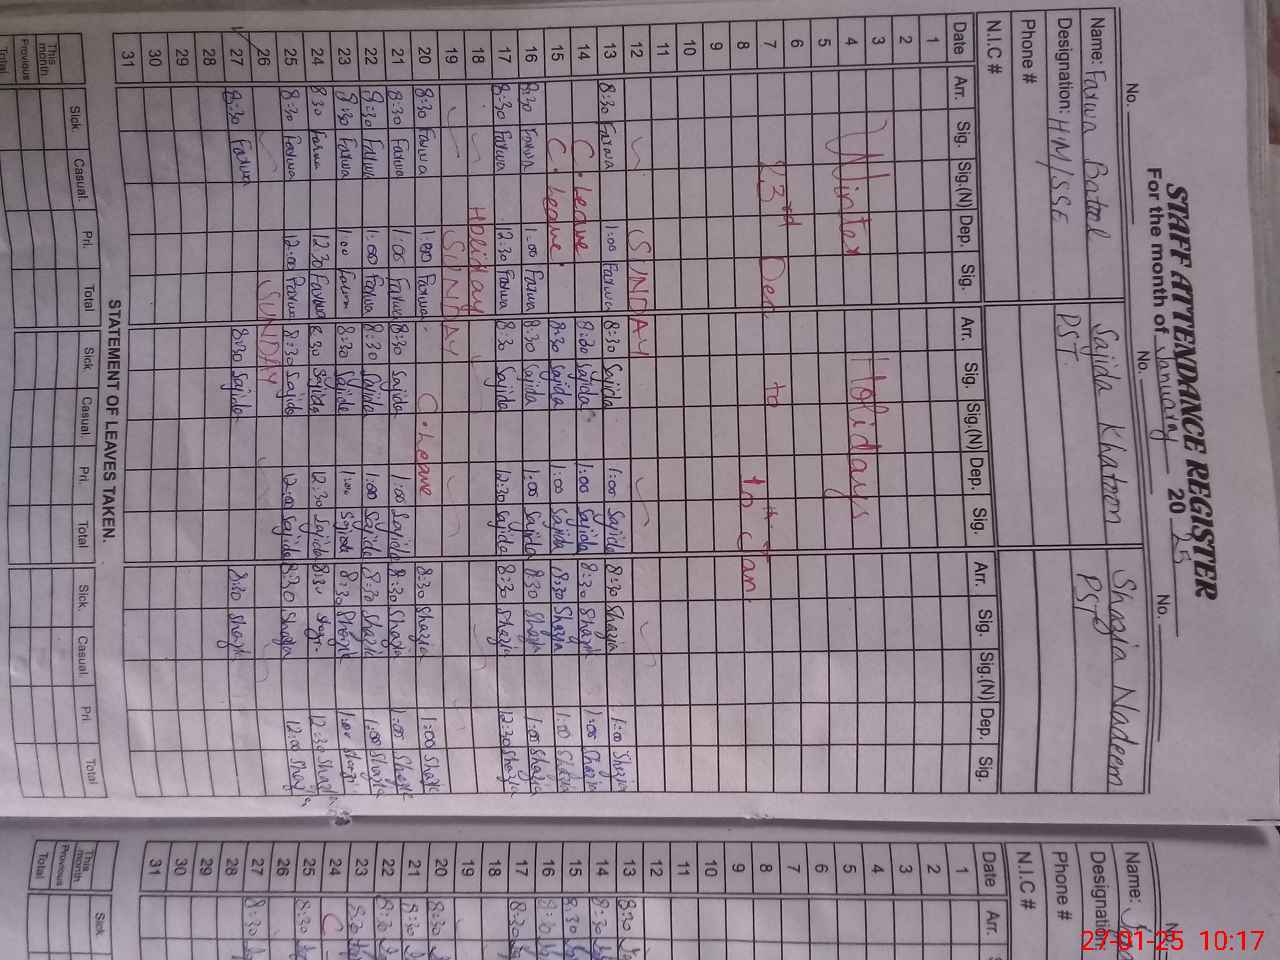 STAFF ATTENDANCE REGISTER
For the month of January 2025
No. No. No.
Name: Farwa Batool Sajida Khatoon Shazia Nadeem
Designation: HM/SSE PST PST
Phone #
N.I.C #
Date Arr. Sig. Sig.(N) Dep. Sig. Arr. Sig. Sig.(N) Dep. Sig. Arr. Sig. Sig.(N) Dep. Sig.
1
2
3
4 Winter Holidays
5
6
7 23rd Dec. to
8 10th Jan.
9
10
11
12 SUNDAY
13 8:30 Farwa 1:00 Farwa 8:30 Sajida 1:00 Sajida 8:30 Shazia 1:00 Shazia
14 C. Leave 8:30 Sajida 1:00 Sajida 8:30 Shazia 1:00 Shazia
15 C. Leave. 8:30 Sajida 1:00 Sajida 8:30 Shazia 1:00 Shazia
16 8:30 Farwa 1:00 Farwa 8:30 Sajida 1:00 Sajida 8:30 Shazia 1:00 Shazia
17 8:30 Farwa 12:30 Farwa 8:30 Sajida 12:30 Sajida 8:30 Shazia 12:30 Shazia
18 Holiday
19 SUNDAY
20 8:30 Farwa 1:00 Farwa. C. Leave 8:30 Shazia 1:00 Shazia
21 8:30 Farwa 1:00 Farwa 8:30 Sajida 1:00 Sajida 8:30 Shazia 1:00 Shazia
22 8:30 Farwa 1:00 Farwa 8:30 Sajida 1:00 Sajida 8:30 Shazia 1:00 Shazia
23 8:30 Farwa 1:00 Farwa 8:30 Sajida 1:00 Sajida 8:30 Shazia 1:00 Shazia
24 8:30 Farwa 12:30 Farwa 8:30 Sajida 12:30 Sajida 8:30 12:30 Shazia
25 8:30 Farwa 12:00 Farwa 8:30 Sajida 12:00 Sajida 8:30 Shazia 12:00 Shazia
26 SUNDAY
27 8:30 Farwa 8:30 Sajida 8:30 Shazia
28
29
30
31
STATEMENT OF LEAVES TAKEN.
Sick Casual. Pri. Total Sick Casual. Pri. Total Sick. Casual Pri. Total
This month
Previous
Total
No.
Name:
Designation
Phone #
N.I.C #
Date Arr.
1
2
3
4
5
6
7
8
9
10
11
12
13 8:30
14 8:30
15 8:30
16 8:30
17 8:30
18
19
20 8:30
21 8:30
22 8:30
23 8:30
24 C
25 8:30
26
27 8:30
28
29
30
31
Sick
This month
Previous
Total
27-01-25 10:17